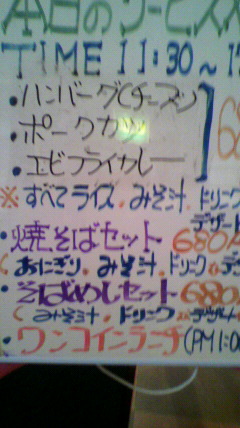 本日のサービス
TIME 11:30～1
・ハンバーグ(チーズ)
・ポークカツ
・エビフライカレー
68
※すべてライス．みそ汁．ドリンク
デザート
・焼そばセット 680
(おにぎり．みそ汁．ドリンク．デ
・そばめしセット 680
(みそ汁．ドリンク．デザート
・ワンコインランチ(PM1:00